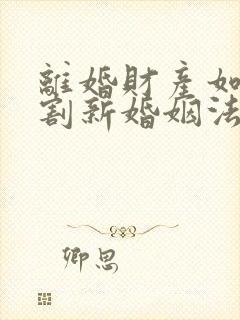 離婚財產如
割新婚姻法
卿思